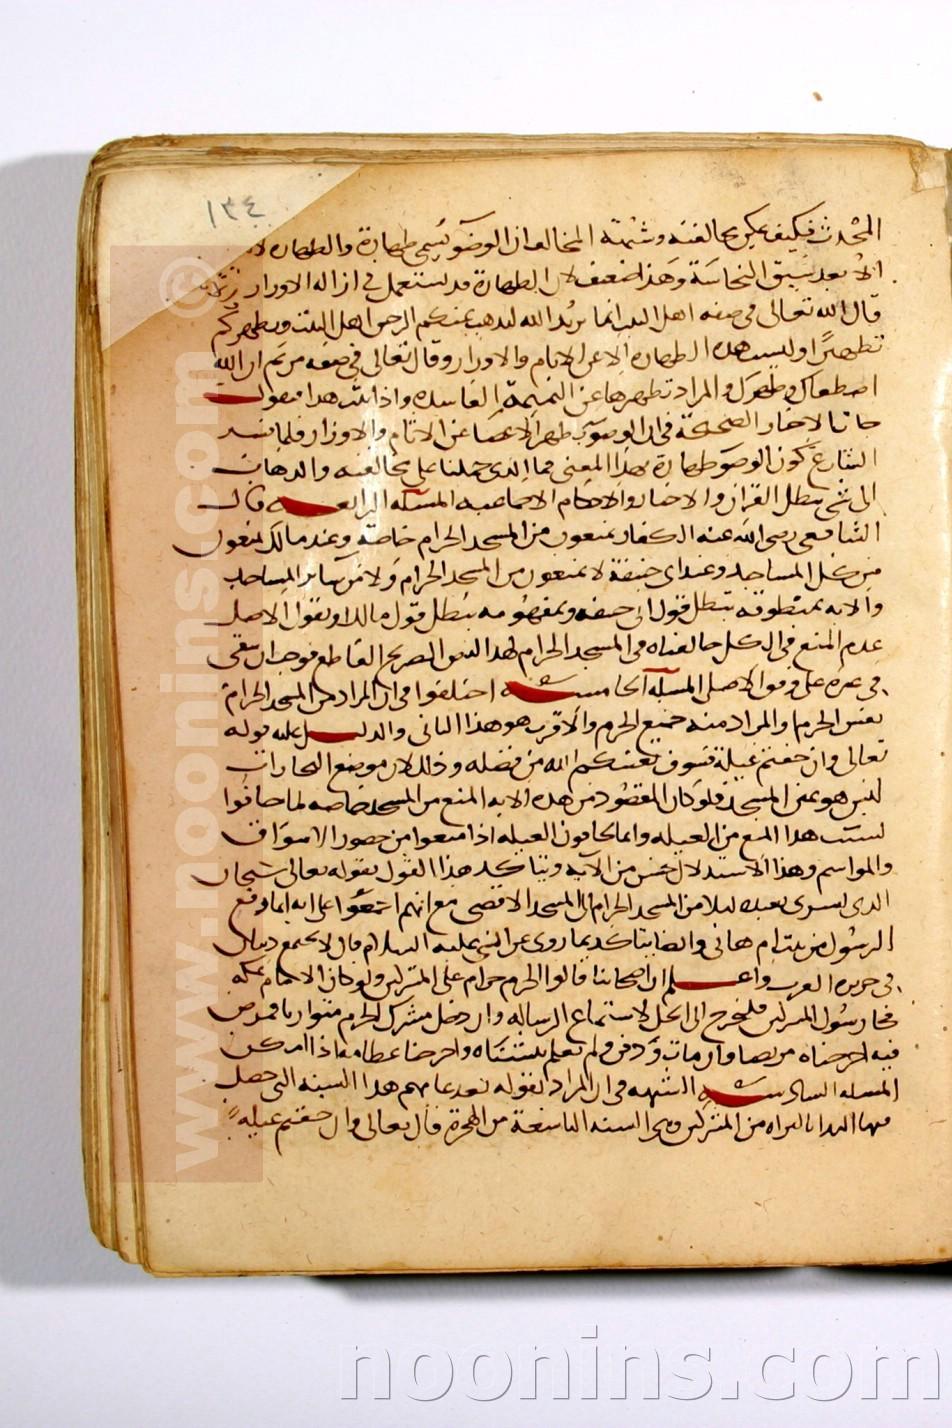 ١٣٤
المحدث فكيف يمكن مخالفته وشبهة المخالف ان الوضوء يسمى طهارة والطهارة لا
الا بعد سبق النجاسة وهذا ضعيف لان الطهارة قد تستعمل في ازالة الاوزار
قال الله تعالى في صفة اهل البيت انما يريد الله ليذهب عنكم الرجس اهل البيت ويطهركم
تطهيرا وليست هذه الطهارة الا عن الاثام والاوزار وقال تعالى في صفة مريم ان الله
اصطفاك وطهرك والمراد تطهيرها عن التهمة الفاسدة واذا ثبت هذا فنقول
جاءنا الاخبار الصحيحة في ان الوضوء تطهير الاعضا عن الاثام والاوزار فلما فسر
الشارع كون الوضوء طهارة بهذا المعنى فما الذي حملنا على مخالفته والذهاب
الى شي يبطل القران والاخبار والاحكام الاجماعية المسئلة الرابعة قال
الشافعي رضي الله عنه الكفار يمنعون من المسجد الحرام خاصة وعند مالك يمنعون
من كل المساجد وعند ابي حنيفة لا يمنعون من المسجد الحرام ولا من سائر المساجد
والاية بمنطوقه تبطل قول ابي حنيفة وبمفهومه يبطل قول مالك او نقول الاصل
عدم المنع في الكل خالفناه في المسجد الحرام لهذا النص الصريح القاطع فوجب ان يبقى
في غيره على وفق الاصل المسئلة الخامسة اختلفوا في ان المراد من المسجد الحرام
نفس الحرم او المراد منه جميع الحرم والاقرب هو هذا الثاني والدليل عليه قوله
تعالى وان خفتم عيلة فسوف يغنيكم الله من فضله وذلك لان موضع التجارات
ليس هو عين المسجد فلو كان المقصود من هذه الاية المنع من المسجد خاصة لما خافوا
بسبب هذا المنع من العيلة وانما يخافون العيلة اذا منعوا من حضور الاسواق
والمواسم وهذا الاستدلال حسن من الاية ويتاكد هذا القول بقوله تعالى سبحان
الذي اسرى بعبده ليلا من المسجد الحرام الى المسجد الاقصى مع انهم اجمعوا على انه انما رفع
الرسول من بيت ام هاني وايضا يتاكد بما روي عن النبي عليه السلام قال لا يجتمع دينان
في جزيرة العرب واعلم ان اصحابنا قالوا الحرم حرام على المشركين ولو كان الامام بمكة
فجا رسول المشركين فليخرج الى الحل لاستماع الرسالة وان دخل مشرك الحرم متواريا فمرض
فيه اخرجناه مريضا وان مات ودفن ولم نعلم نبشناه واخرجنا عظامه اذا امكن
المسئلة السادسة لا شبهة في ان المراد بقوله بعد عامهم هذا السنة التي حصل
فيها الندا بالبراة من المشركين وهي السنة التاسعة من الهجرة قال تعالى وان خفتم عيلة
www.noonins.com ©
noonins.com